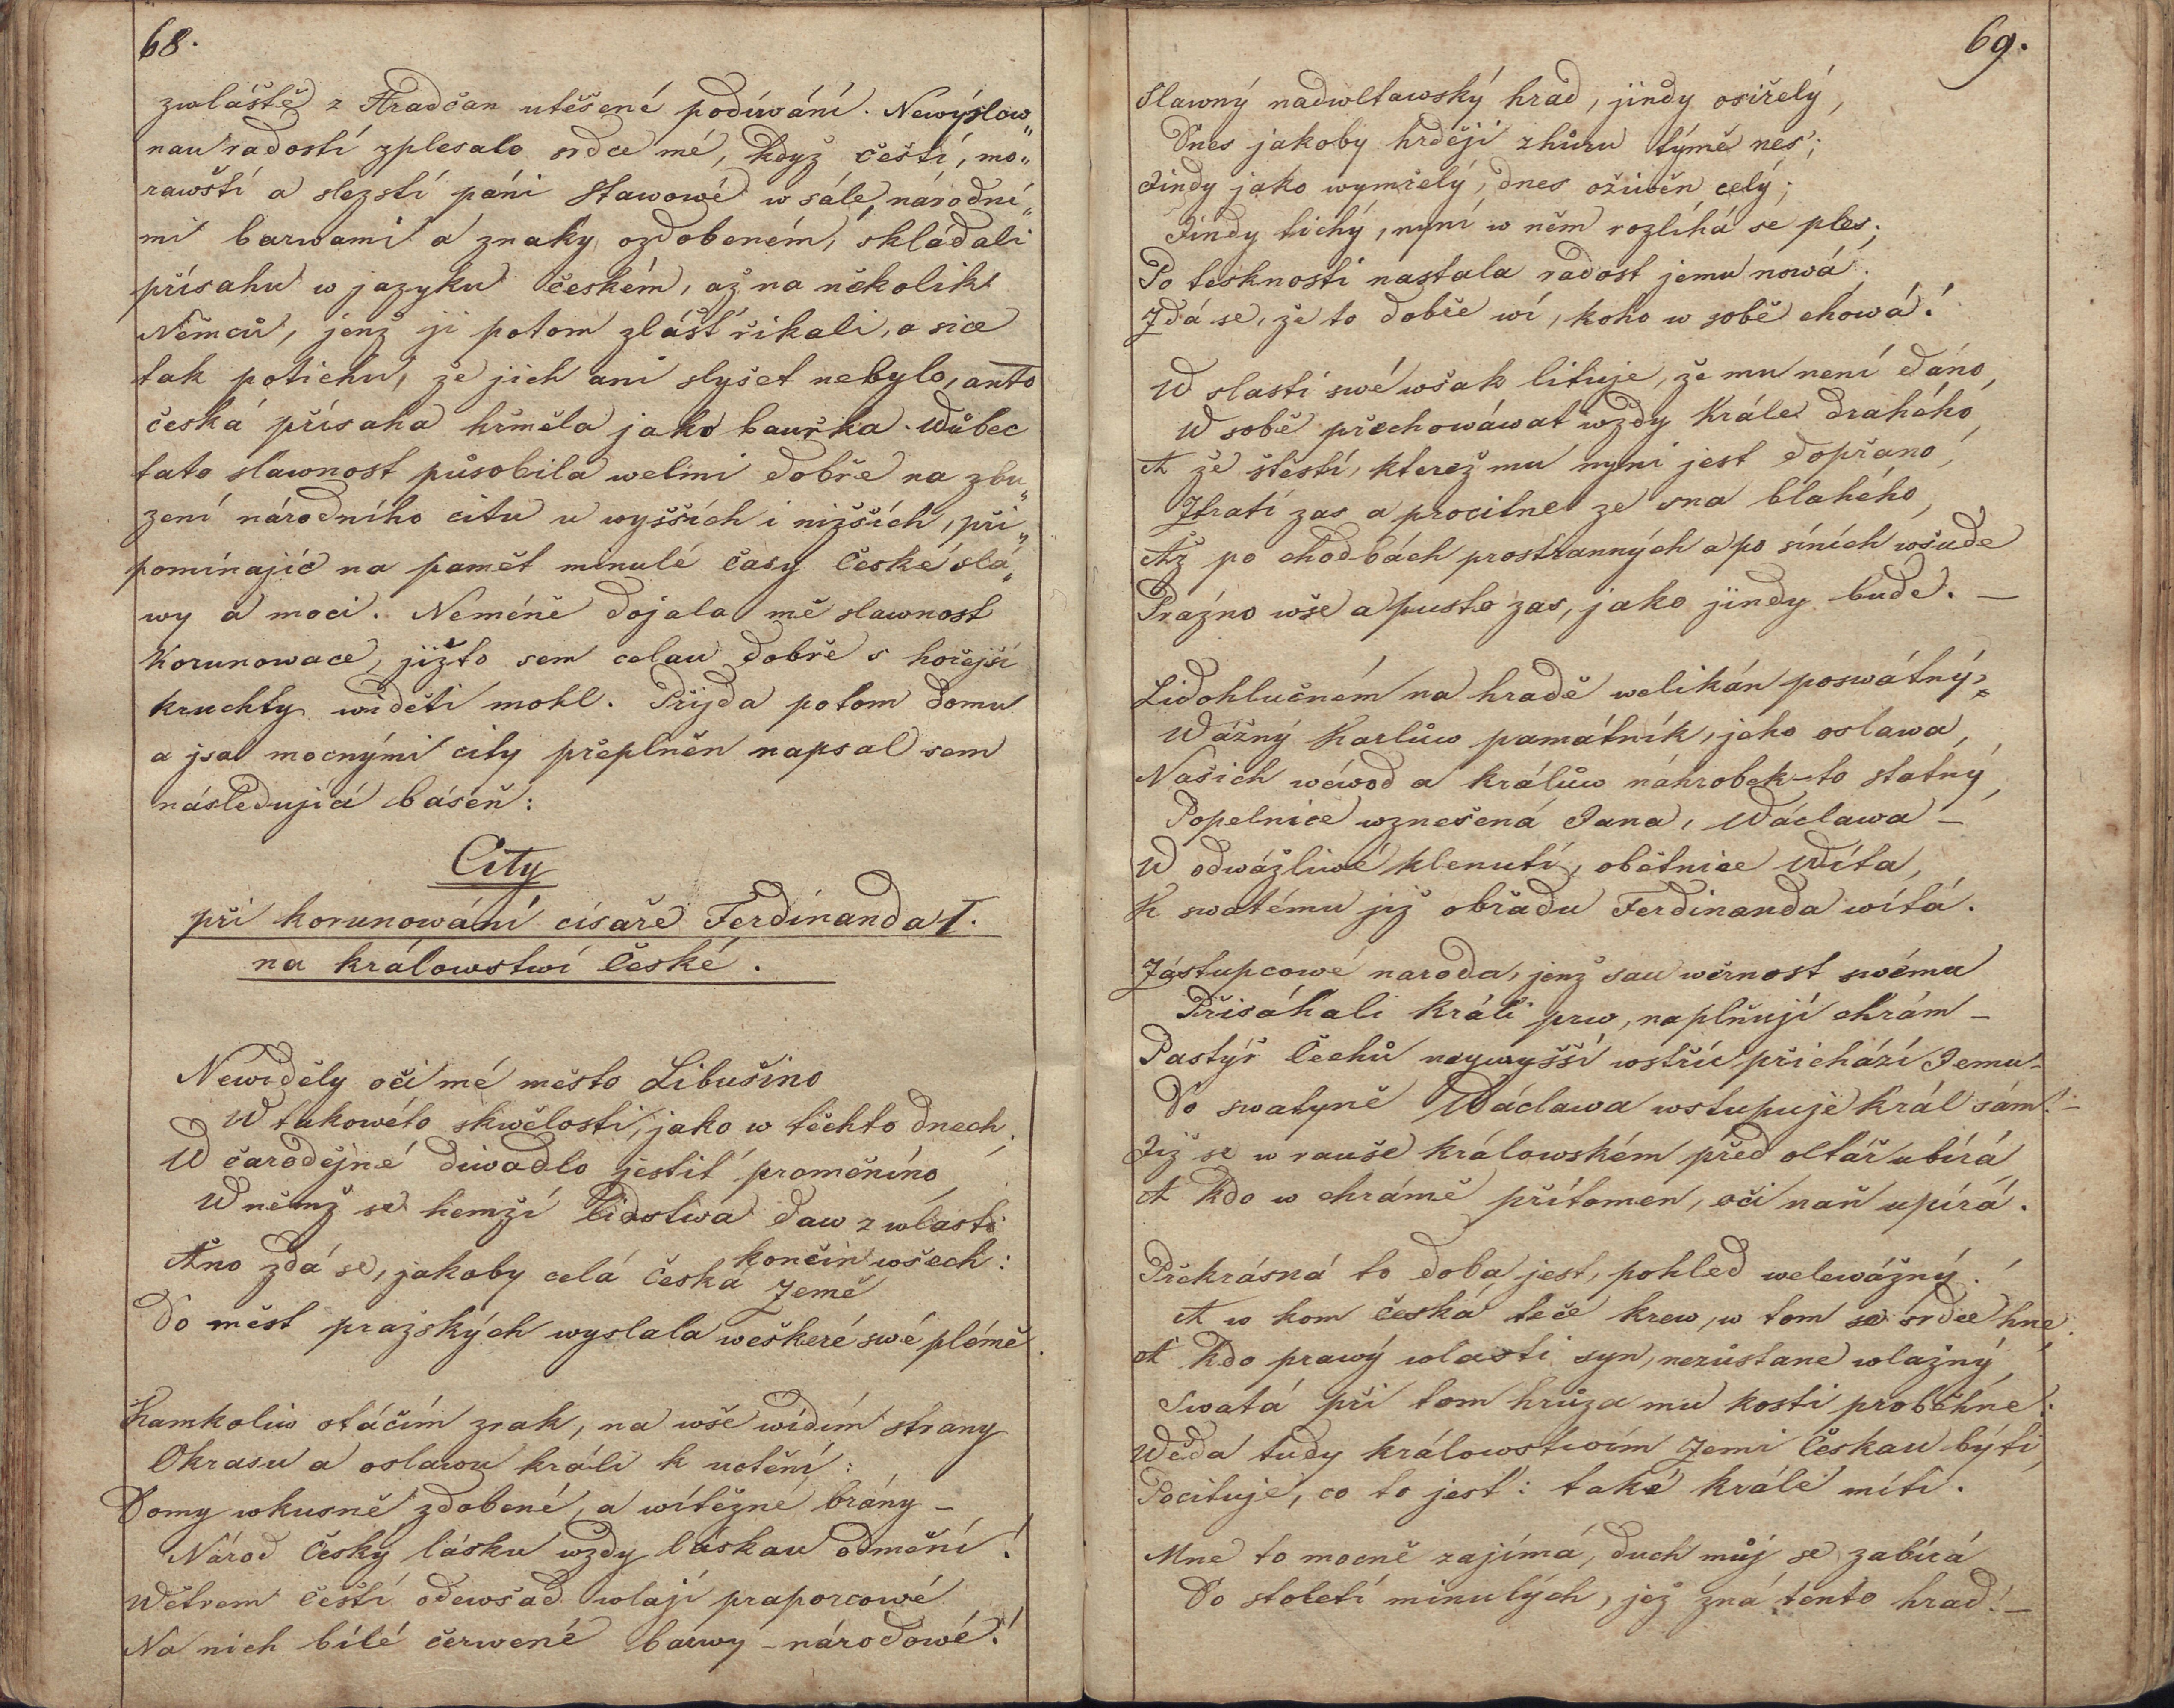 68.
zwláště z Hradčan utěšené podíwání. Newýslow„
nau radostí zplesalo srdce mé, když čeští, mo„
rawští a slezstí páni Stawowé w sále, národní„
mi barwami a znaky ozdobeném, skládali
přísahu w jazyku českém, až na několik
Němců, jenž ji potom zlášť řikali, a sice
tak potichu, že jich ani slyšet nebylo, anto
česká přísaha hřměla jako bauřka. Wůbec
tato slawnost působila welmi dobře na zbu„
zení národního citu u wyšších i nižších, při„
pomínajíc na paměť minulé časy České slá„
wy a moci. Neméně dojala mě slawnost
Korunowace, jižto sem celau dobře s hořejší
kruchty widěti mohl. Přijda potom domu
a jsa mocnými city přeplněn napsal sem
následující báseň:
City
při korunowání císaře Ferdinanda I.
na králowstwí České.
Newiděly oči mé město Libušino
W takowéto skwělosti, jako w těchto dnech;
W čarodějné diwadlo jestiť proměníno,
W němž se hemží lidstwa daw z wlasti
končin wšech:
Ano zdá se, jakoby celá česká Země
Do měst pražských wyslala weškeré swé plémě.
Kamkoliw otáčím zrak, na wše widím strany
Okrasu a oslawu králi k uctění:
Domy wkusně zdobené, a wítězné brány –
Národ Český lásku wždy láskau odmění!
Wětrem čeští odewšad wlají praporcowé
Na nich bílé čerwené barwy – národowé!
69.
Slawný nadwltawský hrad, jindy osiřelý,
Dnes jakoby hrději zhůru týmě nes';
Jindy jako wymřelý, dnes oživěn celý;
Jindy tichý, nyní w něm rozlíhá se ples;
Po tesknosti nastala radost jemu nowá.
Zdá se, že to dobře wí, koho w sobě chowá!
W slasti swé wšak lituje, že mu není dáno,
W sobě přechowáwat wždy Krále drahého,
A že štěstí, kterež mu nyni jest dopřano,
Ztratí zas a procitne ze sna blahého,
Až po chodbách prostranných a po síních wšude
Prázno wše a pusto zas, jako jindy bude. —
Lidohlučném na hradě welikán poswátný,
Wážný Karlůw památník, jeho oslawa,
Našich wéwod a králůw náhrobek-to statný,
Popelnice wznešená Jana, Wáclawa –
W odwážliwé klenutí, obětnice Wíta,
K swatému již obřadu Ferdinanda wítá.
Zástupcowé naroda, jenž sau wěrnost swému
Přisáhali Králi prw, naplňují chrám –
Pastýř Čechů neywyšší wstříc přichází Jemu –
Do swatyně Wáclawa wstupuje král sám! –
Již se w rauše králowském před oltář ubírá
A kdo w chrámě přítomen, oči naň upírá.
Překrásná to doba jest, pohled welewážný!
A w kom česká teče krew, w tom se srdce hne,
A kdo prawý wlasti syn, nezůstane wlažný,
Swatá při tom hrůza mu kosti proběhne:
Wěda tudy králowstwím Zemi Českau býti,
Pocituje, co to jest: také krále míti.
Mne to mocně zajímá, duch můj se zabírá
Do století minulých, jež zná tento hrad! –